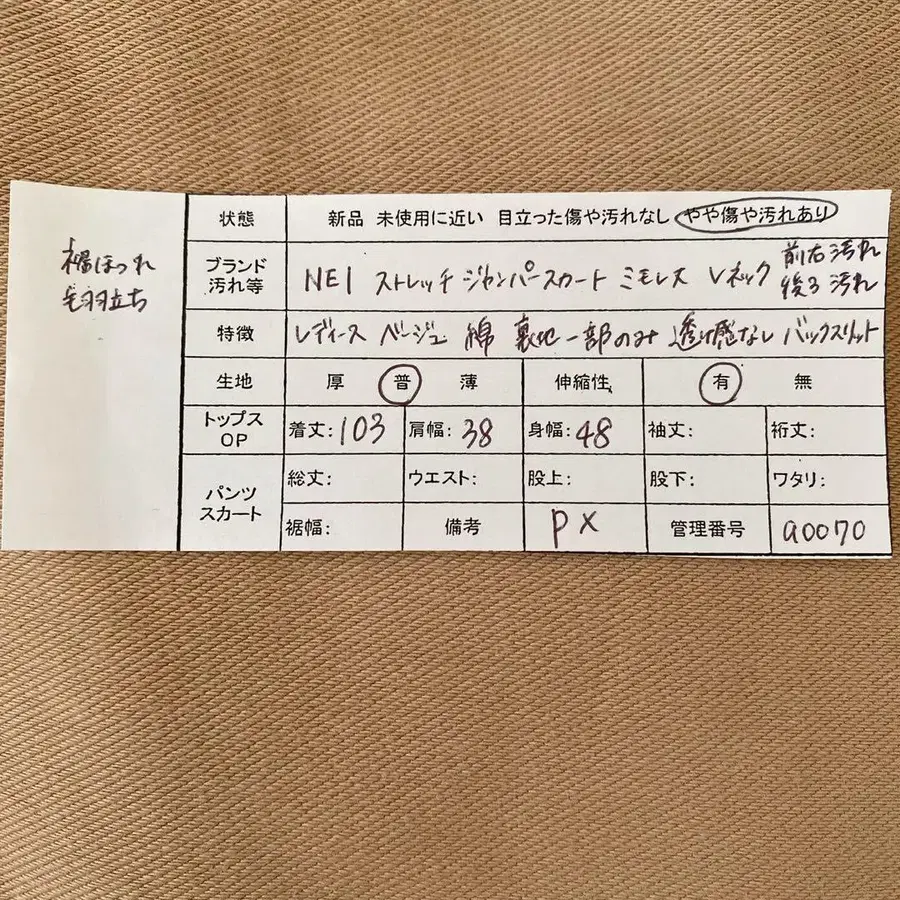 裾ほつれ
毛羽立ち
状態 新品 未使用に近い 目立った傷や汚れなし やや傷や汚れあり
ブランド
汚れ等
NEI ストレッチ ジャンパースカート ミモレ丈 Vネック
前右汚れ
後ろ汚れ
特徴 レディース ベージュ 綿 裏地一部のみ 透け感なし バックスリット
生地 厚 普 薄 伸縮性 有 無
トップス
OP
着丈:103 肩幅:38 身幅:48 袖丈: 裄丈:
パンツ
スカート
総丈: ウエスト: 股上: 股下: ワタリ:
裾幅: 備考 PX 管理番号 a0070